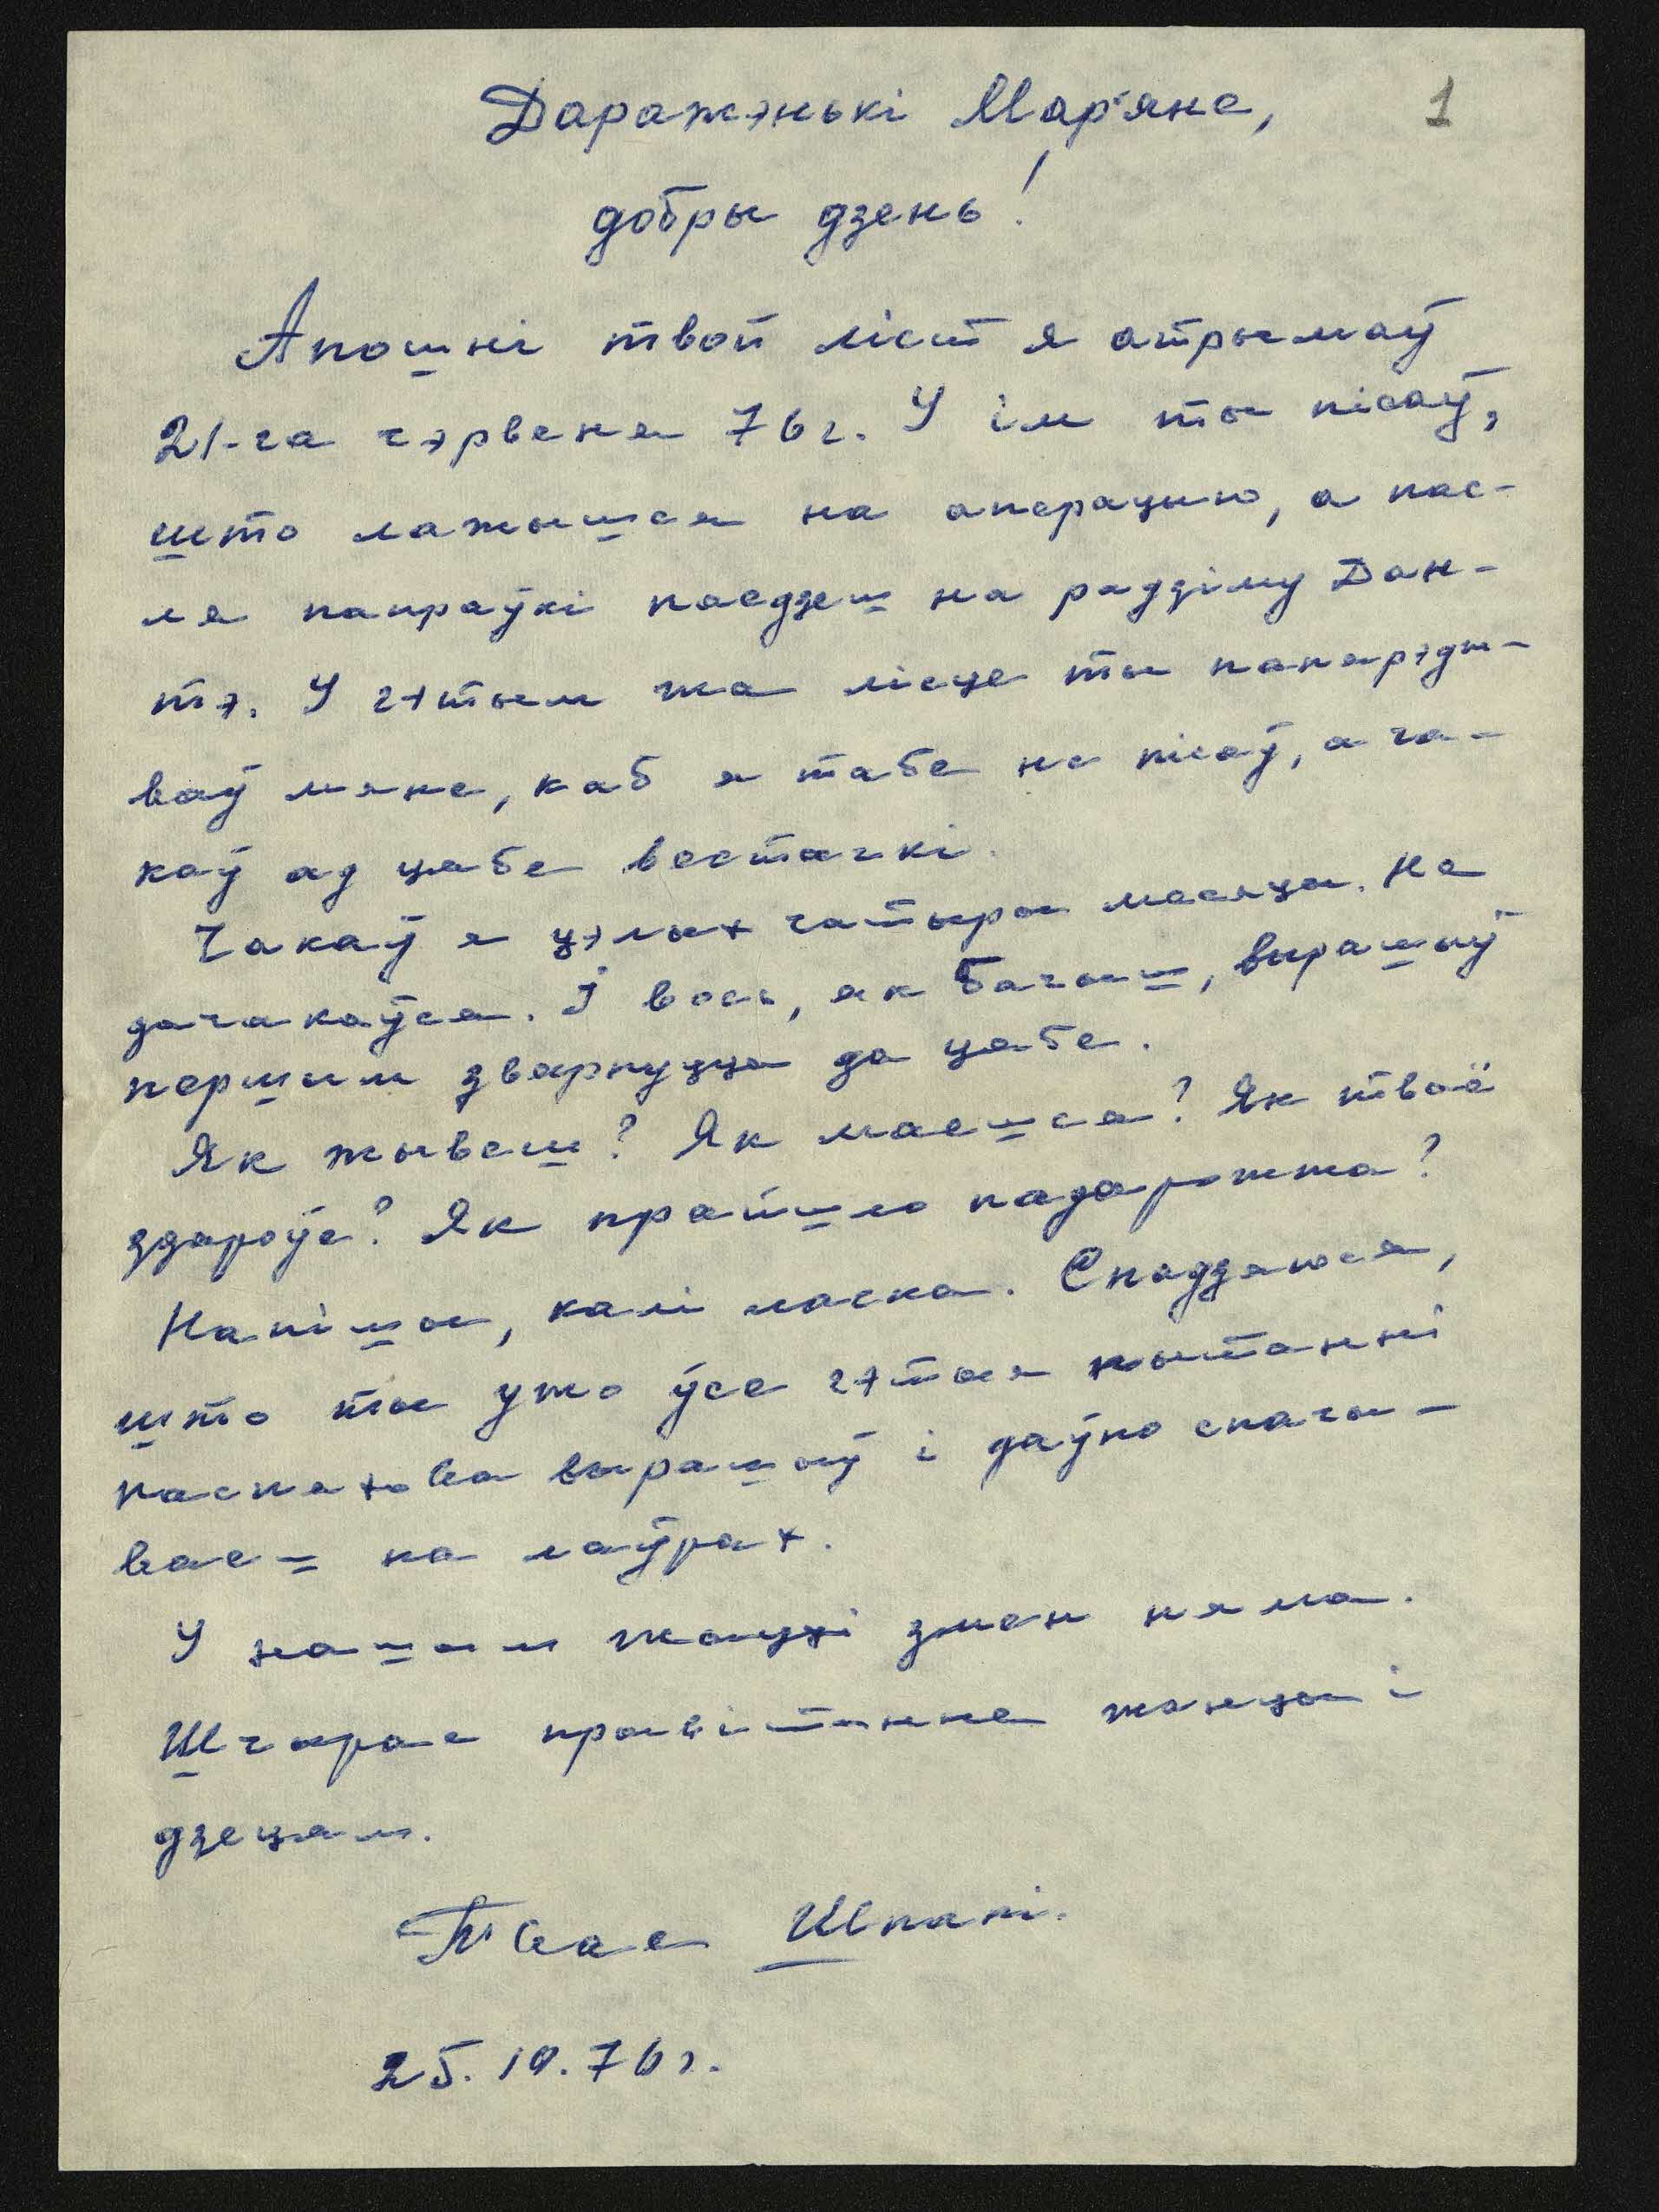 Даражэнькі Мар'яне,
1
добры дзень!
Апошні твой ліст я атрымаў
21-га чэрвеня 76 г. У ім ты пісаў,
што лажышся на аперацыю, а пас-
ля папраўкі паедзеш на радзіму Дан-
тэ. У гэтым жа лісце ты папярэдж-
ваў мяне, каб я табе не пісаў, а ча-
каў ад цябе вестачкі.
Чакаў я цэлых чатыры месяцы. Не
дачакаўся. І вось, як бачыш, вырашыў
першым звярнуцца да цябе.
Як жывеш? Як маешся? Як тваё
здароўе? Як прайшло падарожжа?
Напішы, калі ласка. Спадзяюся,
што ты ужо ўсе гэтыя пытанні
паспяхова вырашыў і даўно спачы-
ваеш на лаўрах.
У нашым жыцці змен няма.
Шчырае прывітанне жонцы і
дзецям.
Твае
25.10.76 г.